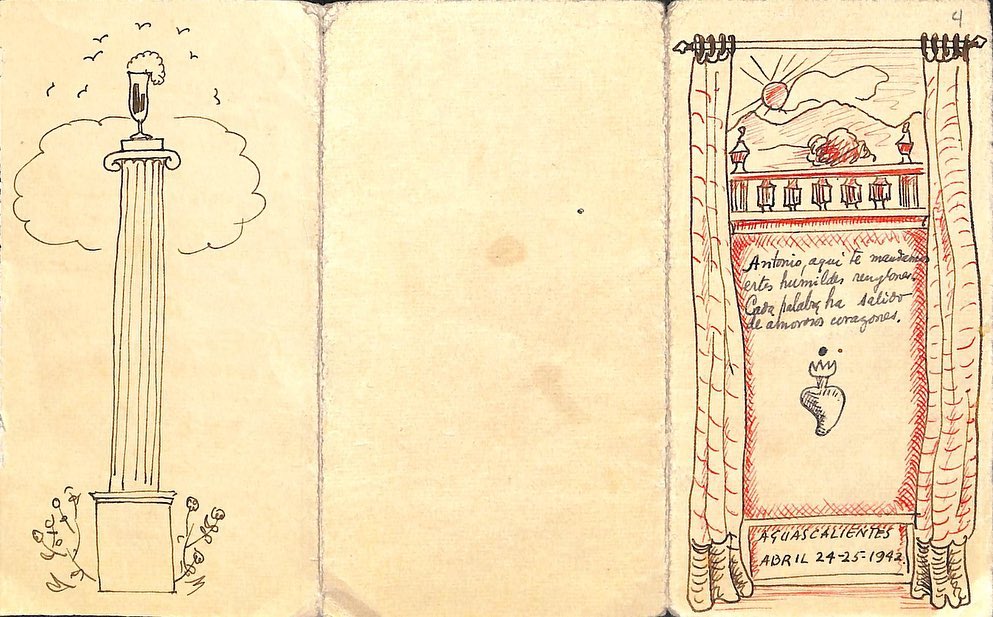 4
Antonio, aqui te mandamos
estos humildes renglones.
Cada palabra ha salido
de amorosos corazones.
AGUASCALIENTES
ABRIL 24-25-1942.